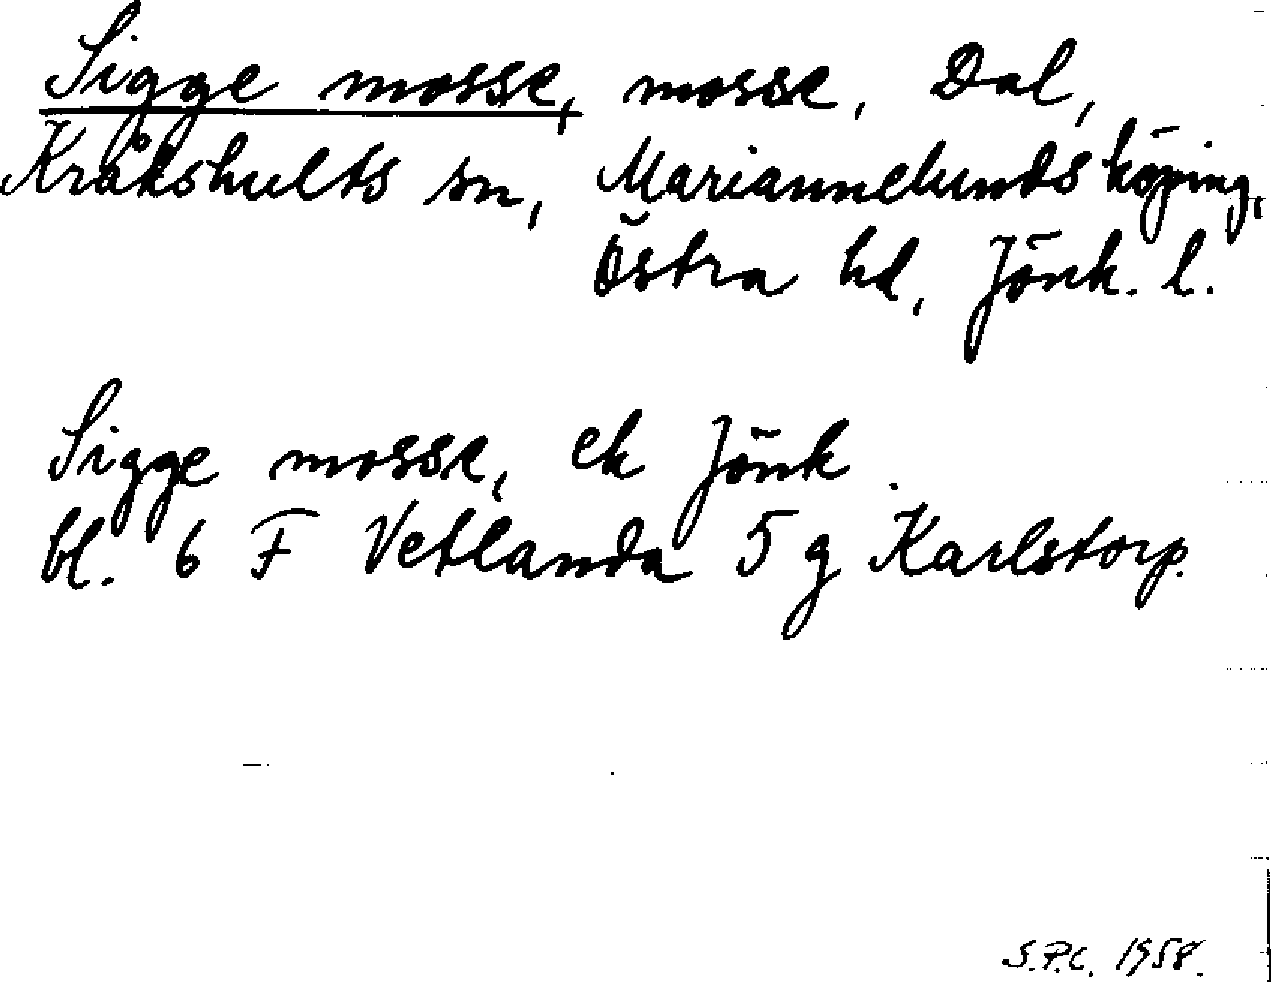 Sigge mosse, mosse, Dal,
Kråkshults sn, Mariannelunds köping,
Östra hd, Jönk. l.
Sigge mosse, ek Jönk.
bl. 6 F Vetlanda 5 g Karlstorp.
S.P.C. 1958.